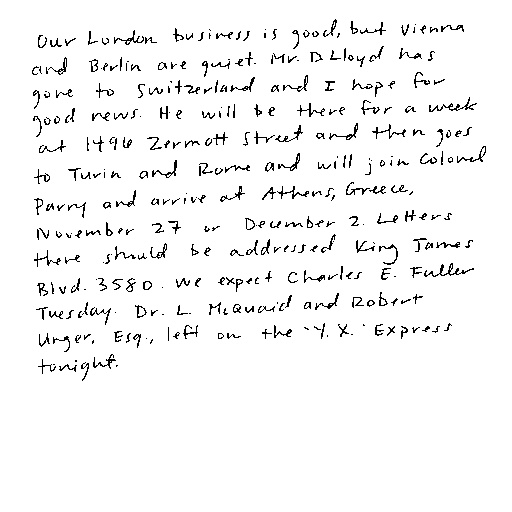 Our London business is good, but Vienna
and Berlin are quiet. Mr. D. Lloyd has
gone to Switzerland and I hope for
good news. He will be there for a week
at 1496 Zermott Street and then goes
to Turin and Rome and will join Colonel
Parry and arrive at Athens, Greece,
November 27 or December 2. Letters
there should be addressed King James
Blvd. 3580. We expect Charles E. Fuller
Tuesday. Dr. L. McQuaid and Robert
Unger, Esq., left on the "Y. X." Express
tonight.